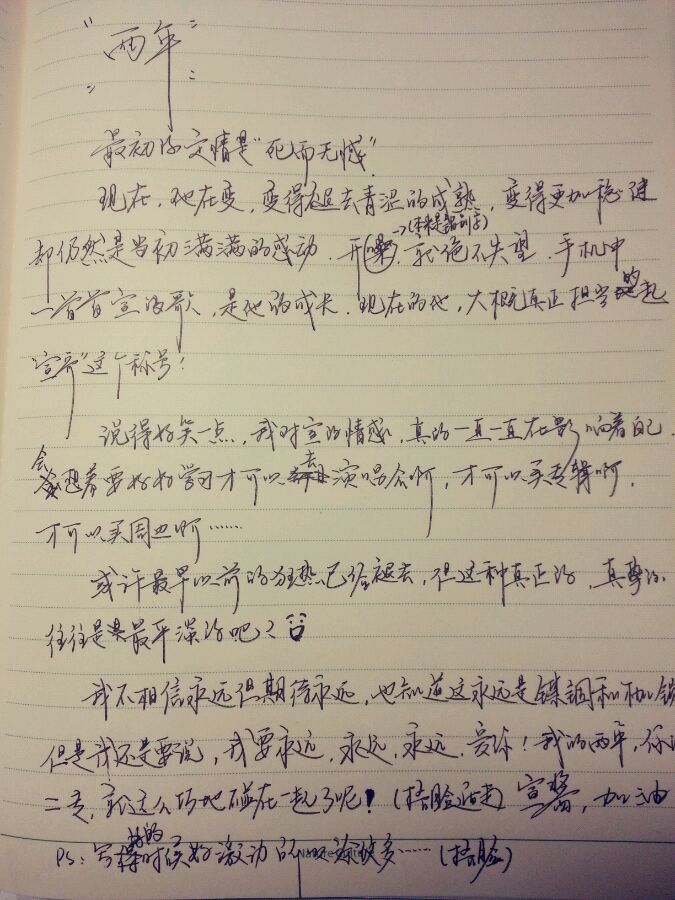 "两年"
最初的定情是"死而无憾"
现在，他在变，变得褪去青涩的成熟，变得更加稳健
→(本来是留刻舌)
却仍然是当初满满的感动．开嗓，就绝不失望．手机中
一首首宣的歌，是他的成长．现在的他，大概真正担当的起
"宣哥"这个称号！
说得好笑一点，我对宣的情感，真的一直一直在影响着自己．
会想着要好好学习才可以去演唱会啊，才可以买专辑啊，
才可以买周边啊……
或许最早以前的狂热已经褪去，但这种真正的，真挚的
往往是最平淡的吧？
我不相信永远但期待永远，也知道这永远是镍铜和
但是我还是要说，我要永远，永远，永远，爱你！我的两年，你的
二专，就这么巧地碰在一起了呢！(捂脸逃走) 宣酱，加油
PS：写的时候好激动所以涂改多……(捂脸)